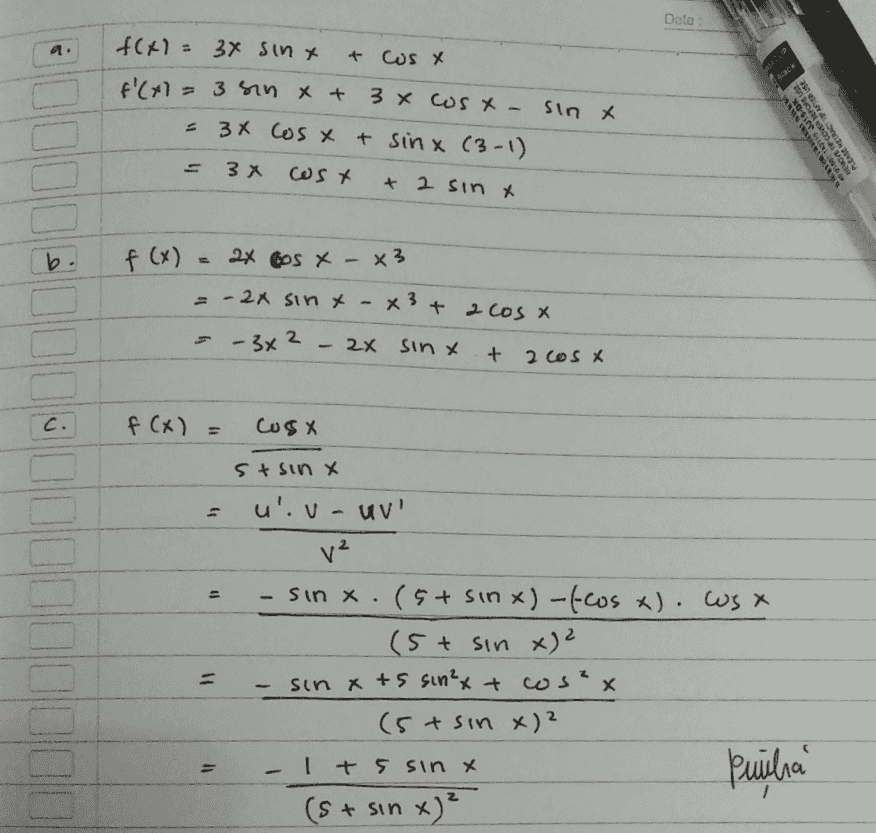 Date :
a. f(x) = 3x sin x + cos x
f'(x) = 3 sin x + 3x cos x - sin x
= 3x cos x + sin x (3-1)
= 3x cos x + 2 sin x
b. f(x) = 2x cos x - x3
= -2x sin x - x³ + 2 cos x
= -3x² - 2x sin x + 2 cos x
c. f(x) = cos x
5 + sin x
= u'. v - uv'
v²
= - sin x . (5 + sin x) - (-cos x) . cos x
(5 + sin x)²
= - sin x + 5 sin²x + cos² x
(5 + sin x)²
= - 1 + 5 sin x
(5 + sin x)²